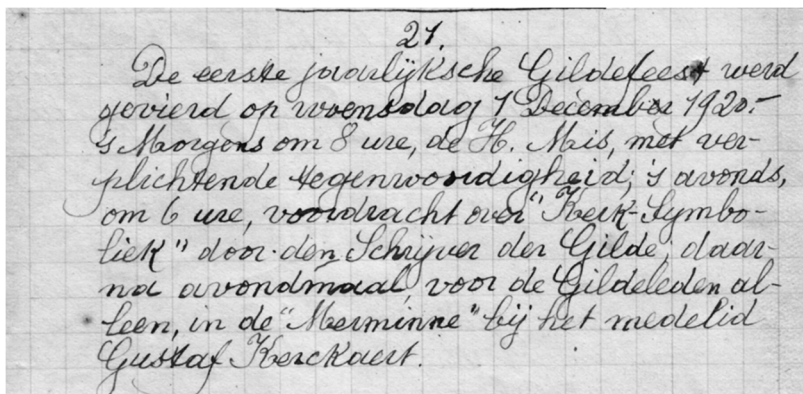 21.
De eerste jaarlijksche Gildefeest werd
gevierd op woensdag 1 December 1920.-
's Morgens om 8 ure, de H. Mis, met ver-
plichtende tegenwoordigheid; 's avonds,
om 6 ure, voordracht over "Kerk-Symbo-
liek" door den Schrijver der Gilde; daar-
na avondmaal, voor de Gildeleden al-
leen, in de "Merminne" bij het medelid
Gustaf Kerckaert.